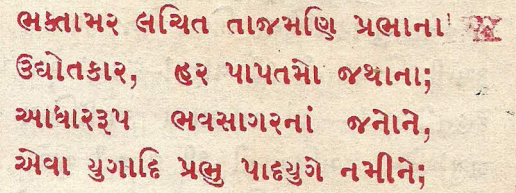 ભક્તામર લચિત તાજમણિ પ્રભાના
ઉદ્યોતકાર, હર પાપતમો જથાના;
આધારરૂપ ભવસાગરનાં જનોને,
એવા યુગાદિ પ્રભુ પાદયુગે નમીને;